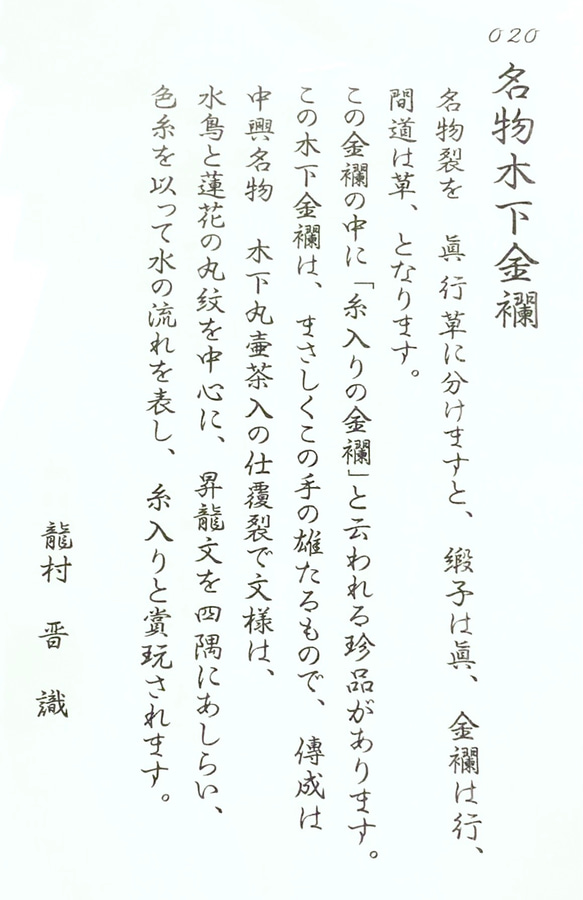 020
名物木下金襴
名物裂を 眞行草に分けますと、 緞子は眞、 金襴は行、
間道は草、となります。
この金襴の中に「糸入りの金襴」と云われる珍品があります。
この木下金襴は、まさしくこの手の雄たるもので、傳成は
中興名物 木下丸壷茶入の仕覆裂で文様は、
水鳥と蓮花の丸紋を中心に、昇龍文を四隅にあしらい、
色糸を以って水の流れを表し、糸入りと賞玩されます。
龍村 晋 識